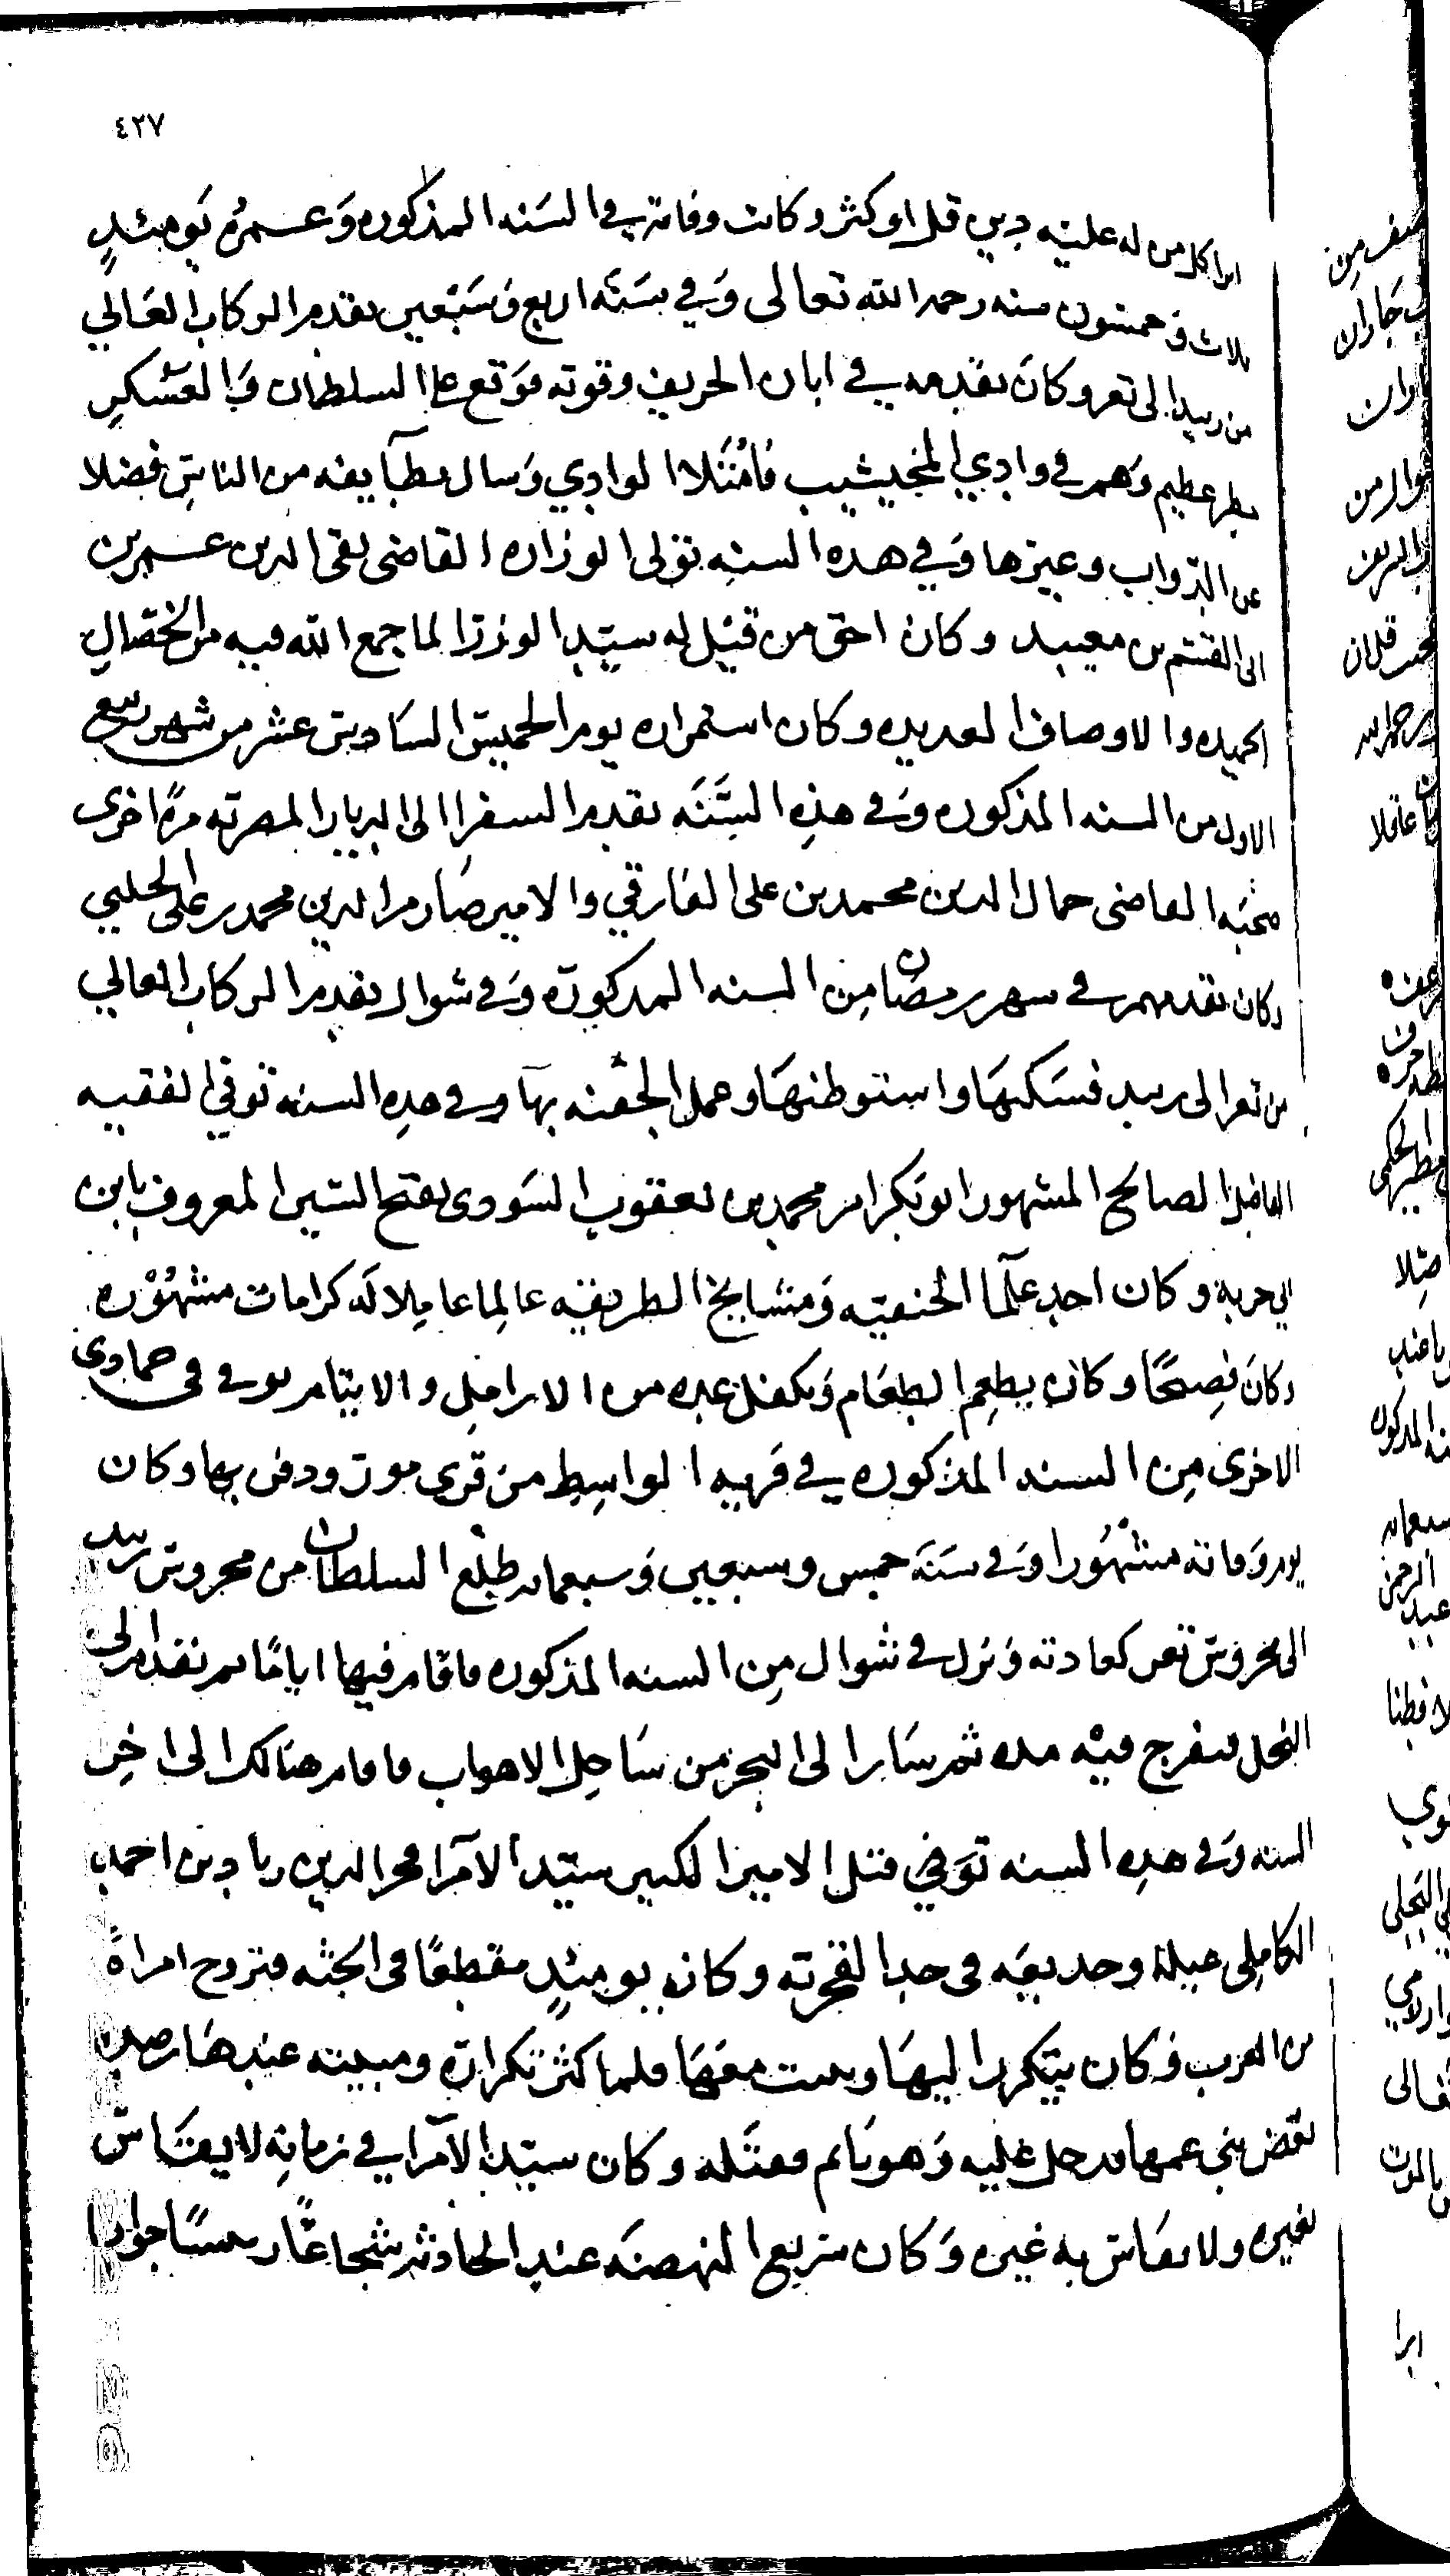 ٤٢٧
ابرا كل من له عليه دين قل او كثر وكانت وفاته في السنه المذكوره وعمره يوميذ
ثلاث وخمسون سنه رحمه الله تعالى وفي سنة اربع وسبعين تقدم الركاب العالي
من زبيد الى تعز وكان تقدمه في ابان الخريف وقوته فوقع على السلطان والعسكر
مطر عظيم وهم في وادي المخيشيب فامتلا الوادي وسال بطايفه من الناس فضلا
عن الدواب وغيرها وفي هذه السنه تولى الوزاره القاضى تقى الدين عمر بن
ابى القسم بن معيبد وكان احق من قيل له سيد الوزرا لما جمع الله فيه من الخصال
الحميده والاوصاف العديده وكان استمراره يوم الخميس السادس عشر من شهر ربيع
الاول من السنه المذكوره وفي هذه السنه تقدم السفرا الى الديار المصريه مرة اخرى
صحبه القاضى جمال الدين محمد بن على الفارقي والامير صارم الدين محمد بن على الحلبي
وكان تقدمهم في شهر رمضان من السنه المذكورة وفي شوال تقدم الركاب العالي
من تعز الى زبيد فسكنها واستوطنها وعمل الختنه بها وفي هذه السنه توفي الفقيه
الفاضل الصالح المشهور ابو بكر ابن محمد بن يعقوب السودى بفتح السين المعروف بابن
ابي حربة وكان احد علما الحنفيه ومشايخ الطريقه عالما عاملا له كرامات مشهوره
وكان فصيحا وكان يطعم الطعام ويكفل عده من الارامل والايتام توفى فى جمادى
الاخرى من السنه المذكوره في قريه الواسط من قرى مور ودفن بها وكان
يوم وفاته مشهورا وفي سنة خمس وسبعين وسبعمايه طلع السلطان من محروس زبيد
الى محروس تعز كعادته ونزل في شوال من السنه المذكوره فاقام فيها اياما ثم تقدم الى
النخل فتفرج فيه مده ثم سار الى البحر من ساحل الاهواب فاقام هنالك الى اخر
السنه وفي هذه السنه توفي قتل الامير الكبير سيد الامرا فخر الدين زياد بن احمد
الكاملى غيلة وخديعه فى حد القحريه وكان يوميذ مقطعا فى الجثه فتزوج امراة
من العرب فكان يتكرر اليها ويبيت معها فلما كثر تكراره ومبيته عندها رصده
بعض بنى عمها فدخل عليه وهو نايم فقتله وكان سيد الامرا في زمانه لا يقاس
بغيره ولا يقاس به غيره وكان سريع النهضه عند الحادثه شجاعا رييسا جوادا